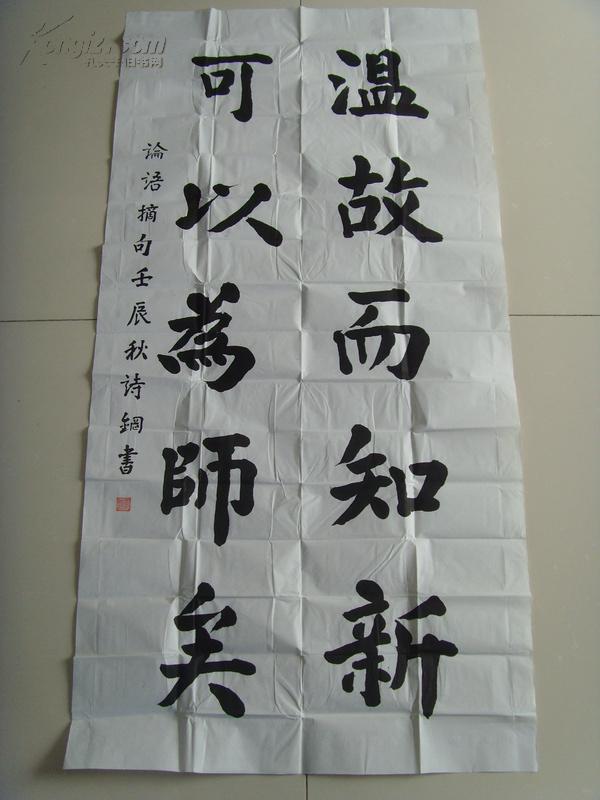 溫故而知新
可以為師矣
論語摘句壬辰秋詩鋼書
Kongfz.com
孔夫子旧书网